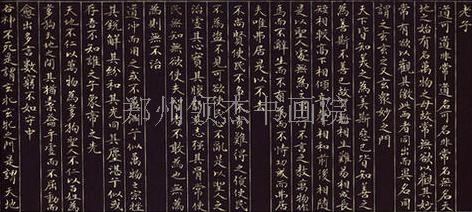 老子
道可道非常道名可名非常名無名天
地之始有名萬物之母故常無欲以觀其妙
常有欲以觀其徼此兩者同出而異名同
謂之玄玄之又玄眾妙之門
天下皆知美之為美斯惡已皆知善之
為善斯不善已故有無相生難易相成長
短相較高下相傾音聲相和前後相隨
是以聖人處無為之事行不言之教萬物作
焉而不辭生而不有為而不恃功成而弗居
夫唯弗居是以不去
不尚賢使民不爭不貴難得之貨使民
不為盜不見可欲使心不亂是以聖人之
治虛其心實其腹弱其志強其骨常使
民無知無欲使夫知者不敢為也為無
為則無不治
道沖而用之或不盈淵乎似萬物之宗挫
其銳解其紛和其光同其塵湛兮似或
存吾不知誰之子象帝之先
天地不仁以萬物為芻狗聖人不仁以百姓為
芻狗天地之間其猶橐籥乎虛而不屈動而
愈出多言數窮不如守中
谷神不死是謂玄牝玄牝之門是謂天地
郑州颂杰书画院